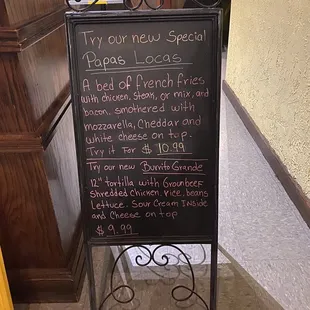 Try our new Special
Papas Locas
A bed of french fries
with chicken, Steak, or mix, and
bacon, smothered with
mozzarella, Cheddar and
white cheese on top.
Try it For $10.99
Try our new Burrito Grande
12" tortilla with Grounbeef
Shredded chicken, rice, beans
Lettuce, Sour Cream Inside
and Cheese on top
$9.99